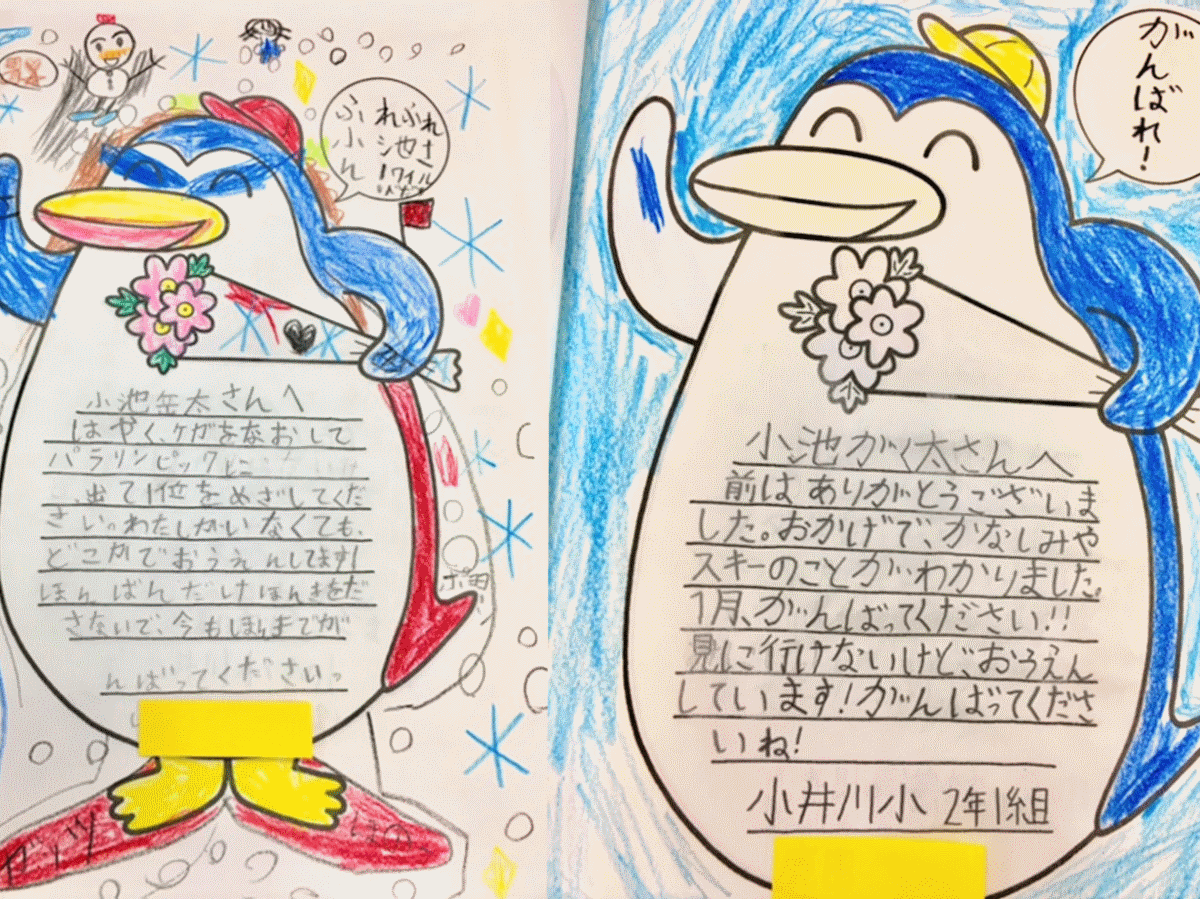 ふフん
小池岳太さんへ
はやく、ケガをなおして
パラリンピックに
出て1位をめざしてくだ
さいっわたしがいなくても、
どこかでおうえんしてます!
ほんばんだけほんきをだ
さないで、今もほんきでが
んばってくださいっ
がんばれ!
小池がく太さんへ
前はありがとうございま
した。おかげで、かなしみや
スキーのことがわかりました。
1月、がんばってください!!
見に行けないけど、おうえん
しています!がんばってくださ
いね!
小井川小 2年1組